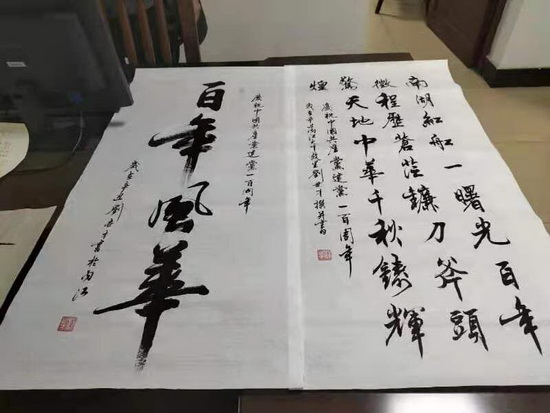 南湖紅船一曙光百年
徵程歷蒼茫鐮刀斧頭
驚天地中華千秋鑄輝
煌
慶祝中國共產黨建黨一百周年
劉世才撰并書
慶祝中國共產黨建黨一百周年
百年風華
書於南江